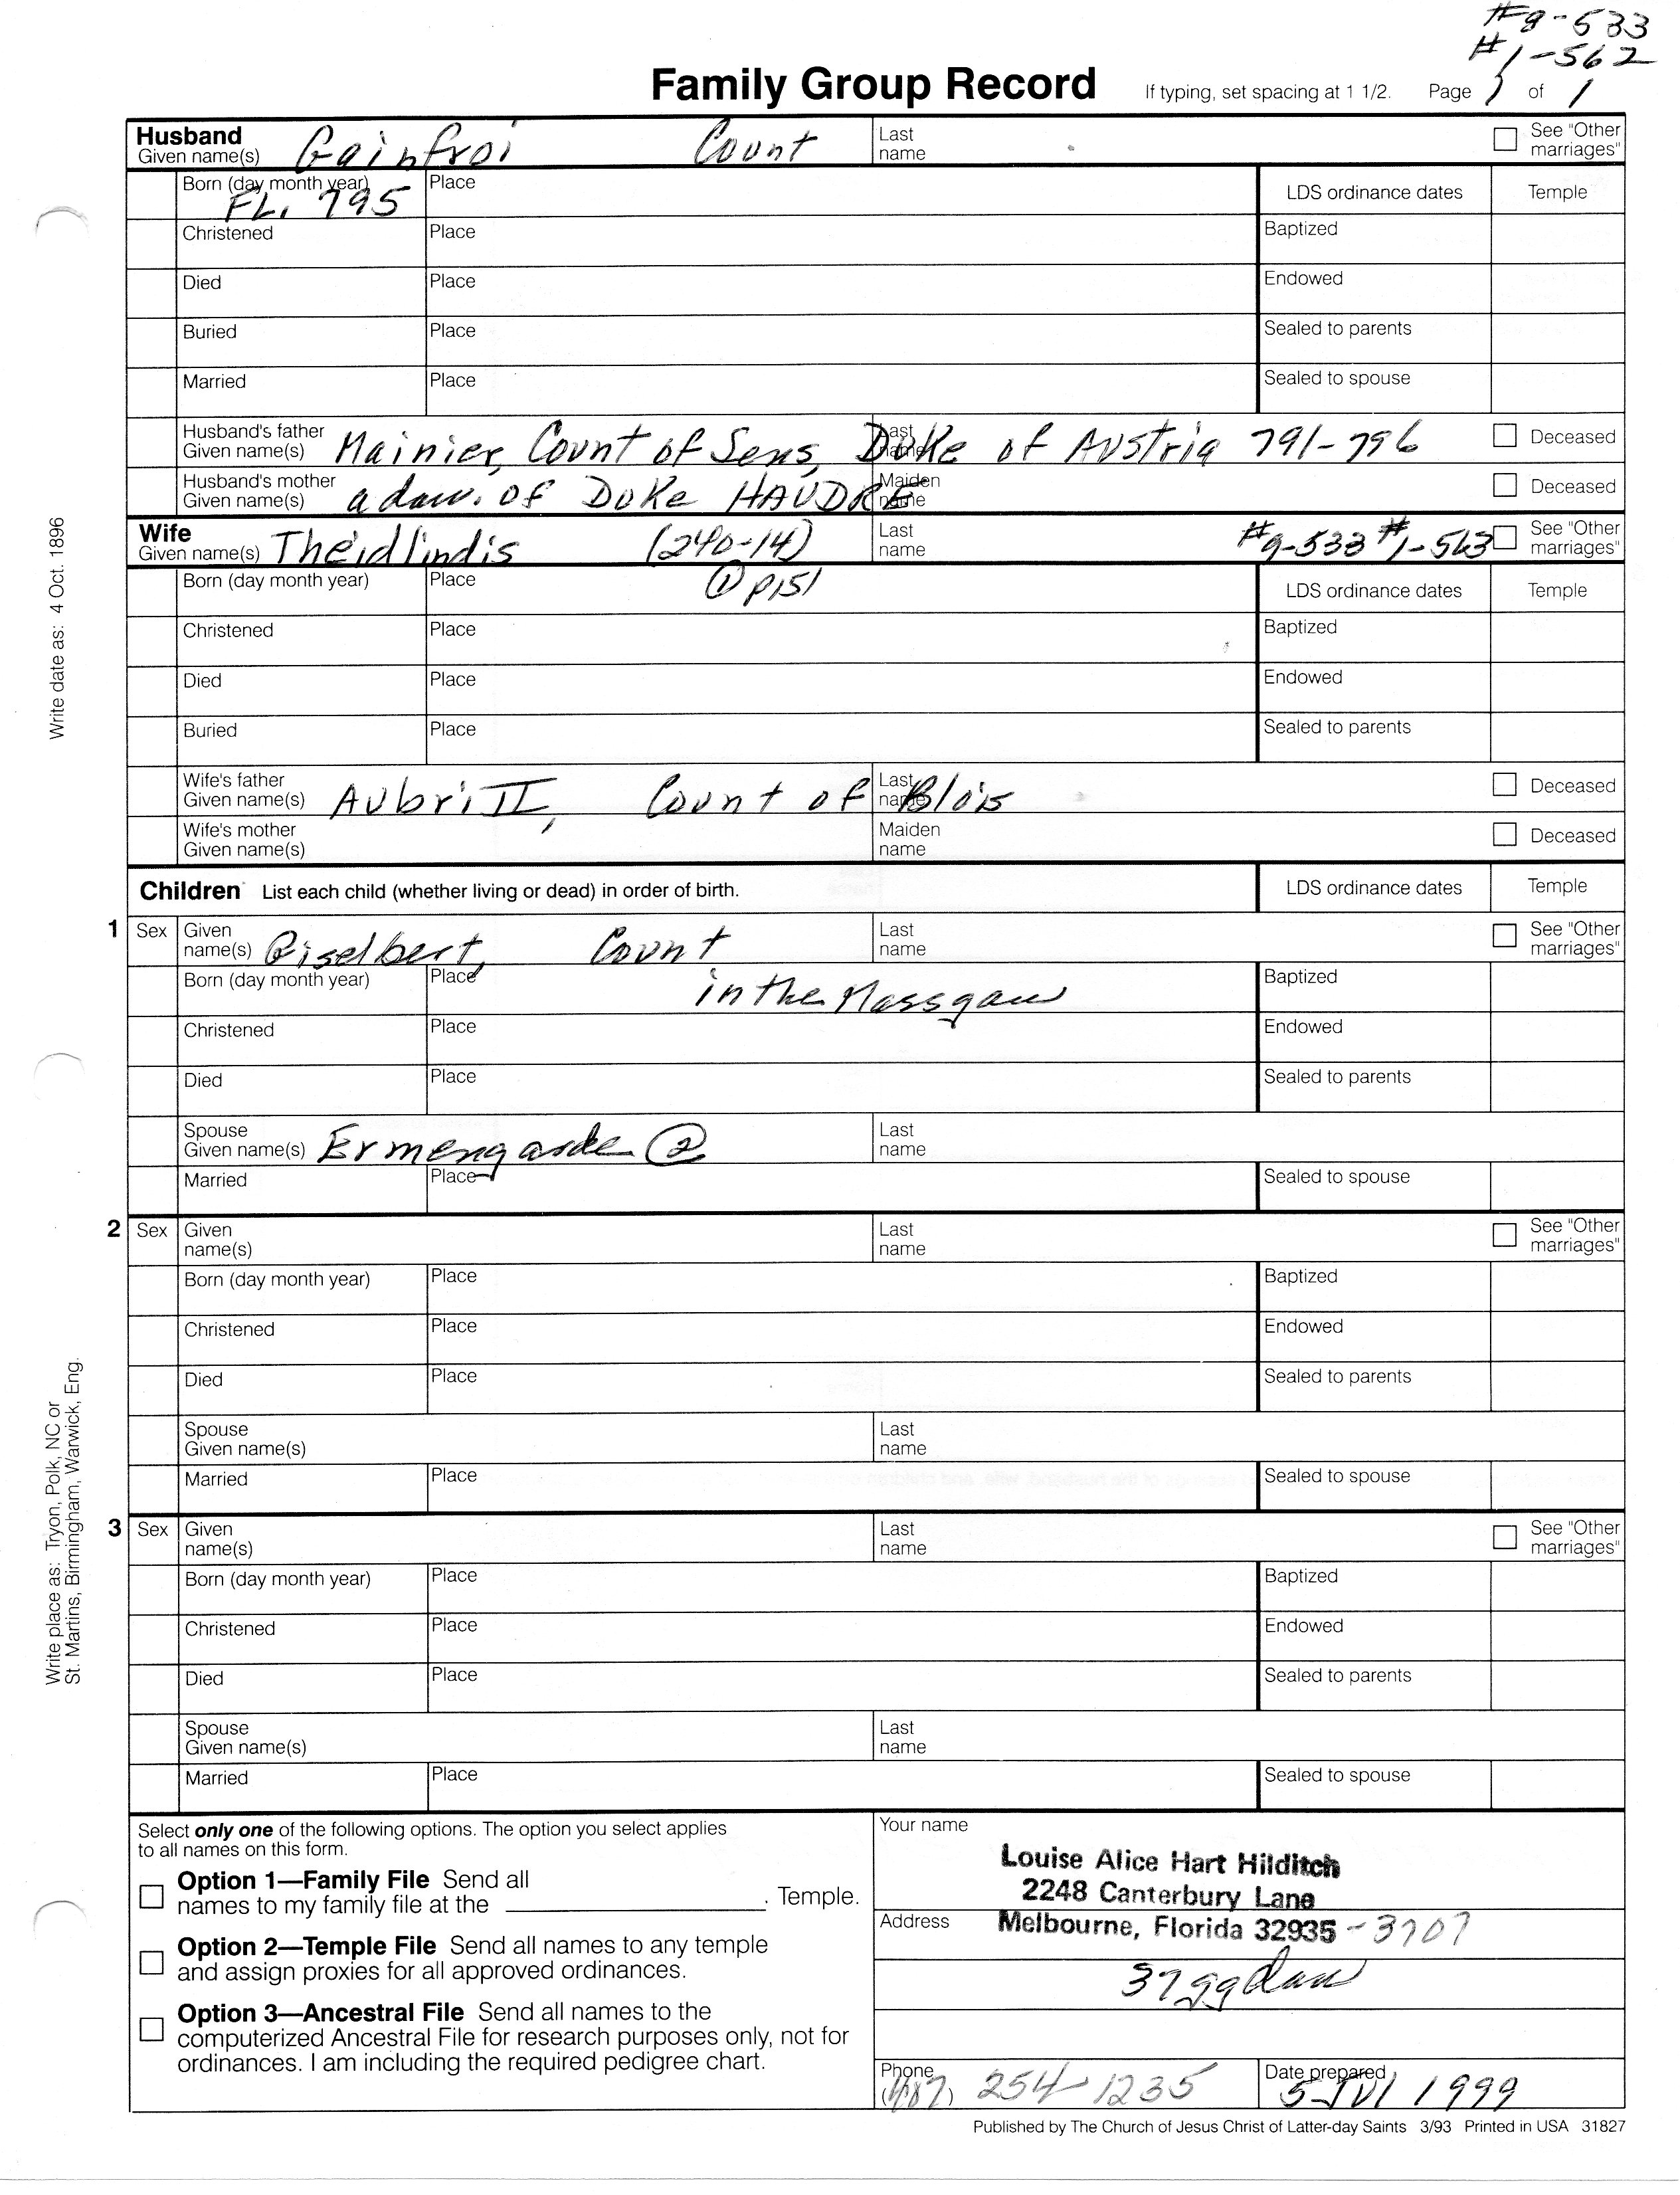 #9-533
#1-562
Family Group Record If typing, set spacing at 1 1/2. Page 1 of 1
Husband
Given name(s) Gainfroi Count Last name See "Other marriages"
Born (day month year) FL. 795 Place LDS ordinance dates Temple
Christened Place Baptized
Died Place Endowed
Buried Place Sealed to parents
Married Place Sealed to spouse
Husband's father Given name(s) Mainier, Count of Sens, Last name Duke of Austria 791-796 Deceased
Husband's mother Given name(s) a dau. of Duke HAUDRE Maiden name Deceased
Wife
Given name(s) Theidlindis (240-14) Last name #9-533 #1-563 See "Other marriages"
Born (day month year) Place ① p151 LDS ordinance dates Temple
Christened Place Baptized
Died Place Endowed
Buried Place Sealed to parents
Wife's father Given name(s) Aubri II, Count of Last name Blois Deceased
Wife's mother Given name(s) Maiden name Deceased
Children List each child (whether living or dead) in order of birth. LDS ordinance dates Temple
1 Sex Given name(s) Giselbert, Count Last name See "Other marriages"
Born (day month year) Place in the Massgau Baptized
Christened Place Endowed
Died Place Sealed to parents
Spouse Given name(s) Ermengarde ② Last name
Married Place Sealed to spouse
2 Sex Given name(s) Last name See "Other marriages"
Born (day month year) Place Baptized
Christened Place Endowed
Died Place Sealed to parents
Spouse Given name(s) Last name
Married Place Sealed to spouse
3 Sex Given name(s) Last name See "Other marriages"
Born (day month year) Place Baptized
Christened Place Endowed
Died Place Sealed to parents
Spouse Given name(s) Last name
Married Place Sealed to spouse
Select only one of the following options. The option you select applies
to all names on this form.
Option 1—Family File Send all
names to my family file at the . Temple.
Option 2—Temple File Send all names to any temple
and assign proxies for all approved ordinances.
Option 3—Ancestral File Send all names to the
computerized Ancestral File for research purposes only, not for
ordinances. I am including the required pedigree chart.
Your name
Louise Alice Hart Hilditch
2248 Canterbury Lane
Address Melbourne, Florida 32935 -3707
37 gg dau
Phone (407) 254-1235 Date prepared 5 Jul 1999
Published by The Church of Jesus Christ of Latter-day Saints 3/93 Printed in USA 31827
Write date as: 4 Oct. 1896
Write place as: Tryon, Polk, NC or
St. Martins, Birmingham, Warwick, Eng.